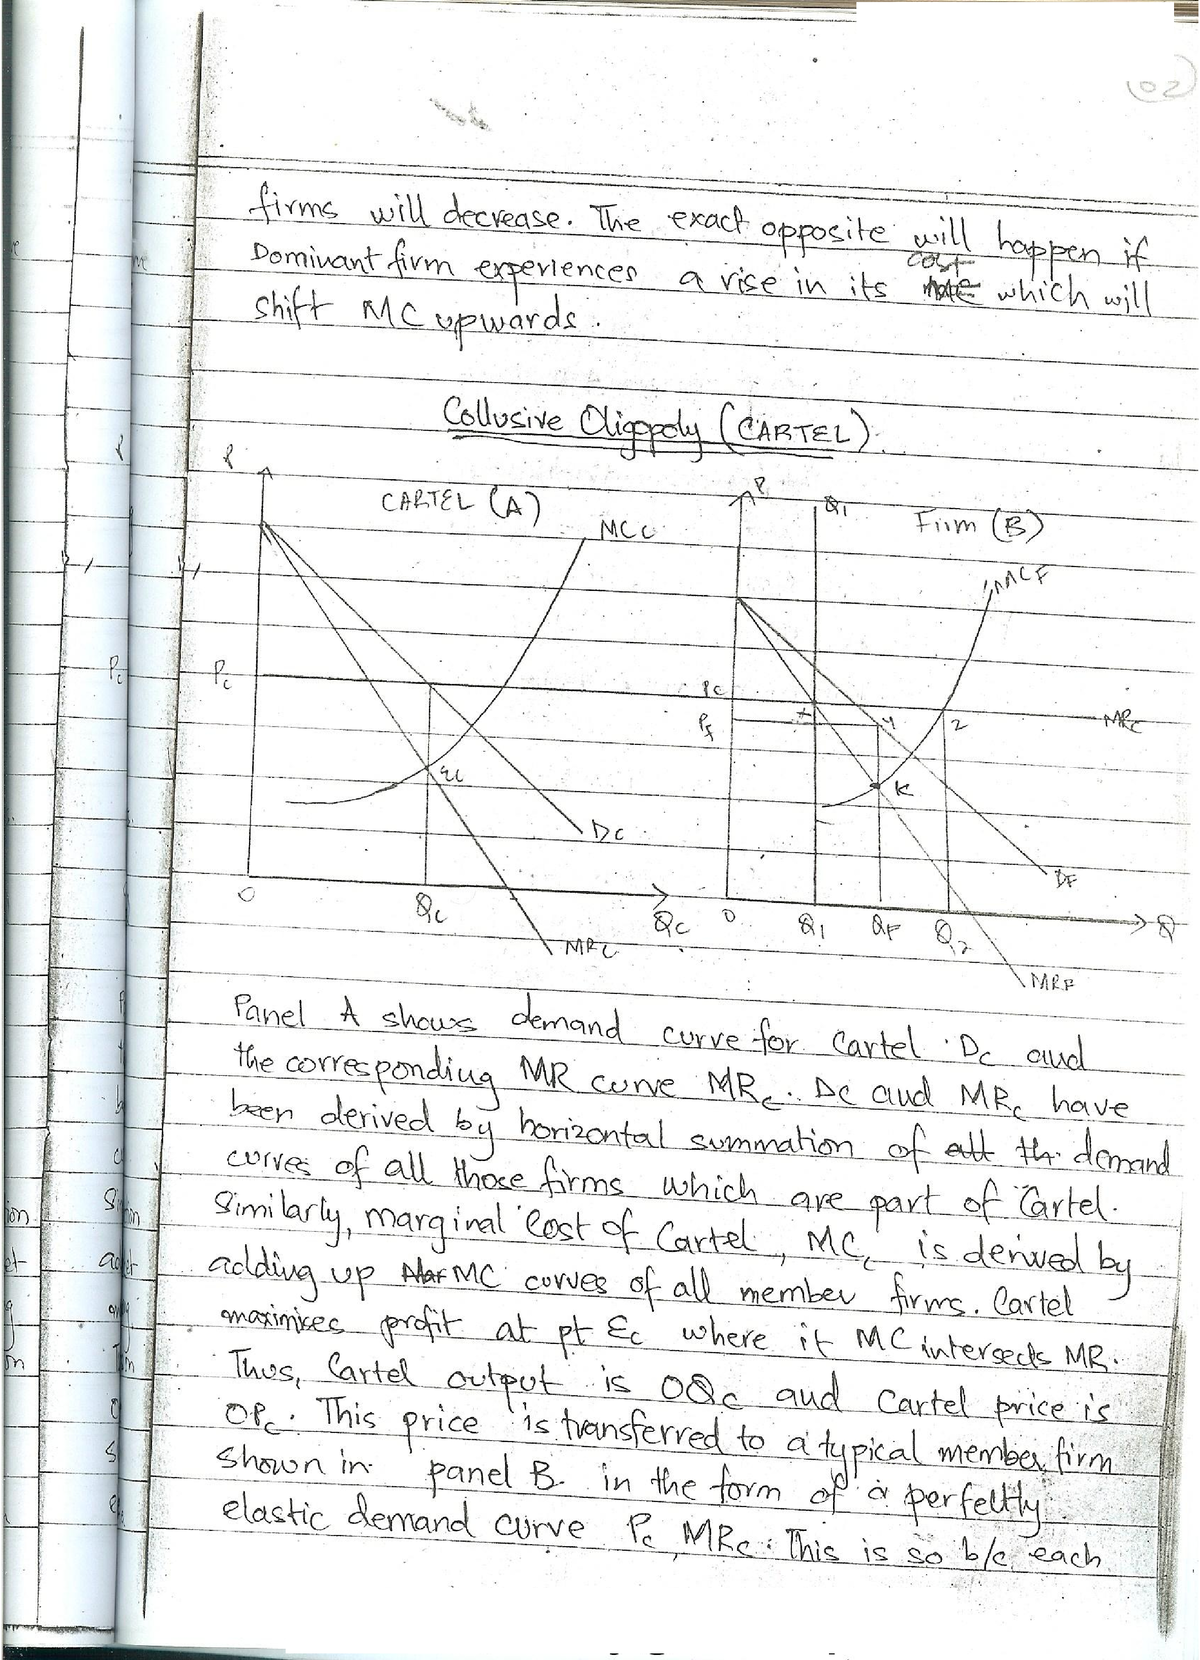 02
firms will decrease. The exact opposite will happen if
Dominant firm experiences a rise in its cost which will
shift MC upwards.
Collusive Oligopoly (CARTEL).
P
CARTEL (A)
MCC
Pc
Ec
Dc
0
Qc
Qc
MRC
P
Q1
Firm (B)
MCF
Pc
Pf
X
Y
Z
MRc
K
DF
0
Q1
QF
Q2
Q
MRF
Panel A shows demand curve for Cartel Dc and
the corresponding MR curve MRc. Dc and MRc have
been derived by horizontal summation of all the demand
curves of all those firms which are part of Cartel.
Similarly, marginal Cost of Cartel, MCc is derived by
adding up Mar MC curves of all member firms. Cartel
maximises profit at pt Ec where it MC intersects MR.
Thus, Cartel output is OQc and Cartel price is
OPc. This price is transferred to a typical member firm
shown in panel B in the form of a perfeltly
elastic demand curve Pc MRc. This is so b/c each